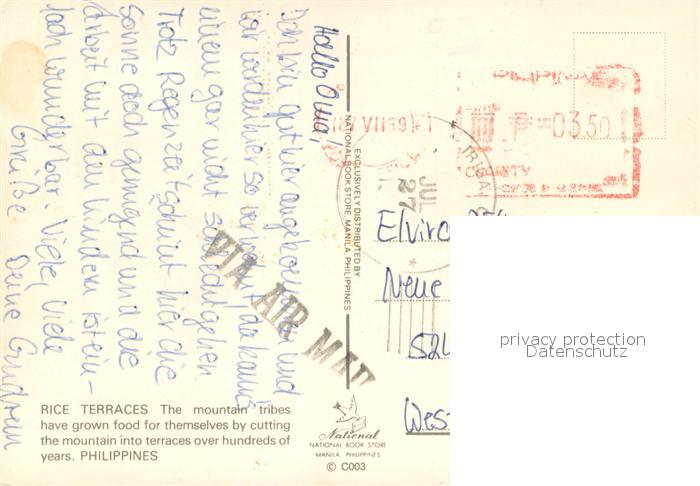 Hallo Oma,
Ich bin gut hier angekommen und
wir werden hier so verwöhnt da kann's
einem gar nicht schlecht gehen.
Trotz Regenzeit scheint hier die
Sonne doch genügend und die
Arbeit mit den Kindern ist ein-
fach wunderbar. Viele, Viele
Grüße
Deine Gudrun
EXCLUSIVELY DISTRIBUTED BY
NATIONAL BOOK STORE, MANILA, PHILIPPINES
VIA AIR MAIL
VII 89
P =03.50
JUL
27
Elvira
Neue
524
West
privacy protection
Datenschutz
RICE TERRACES The mountain tribes
have grown food for themselves by cutting
the mountain into terraces over hundreds of
years. PHILIPPINES
National
NATIONAL BOOK STORE
MANILA, PHILIPPINES
© C003